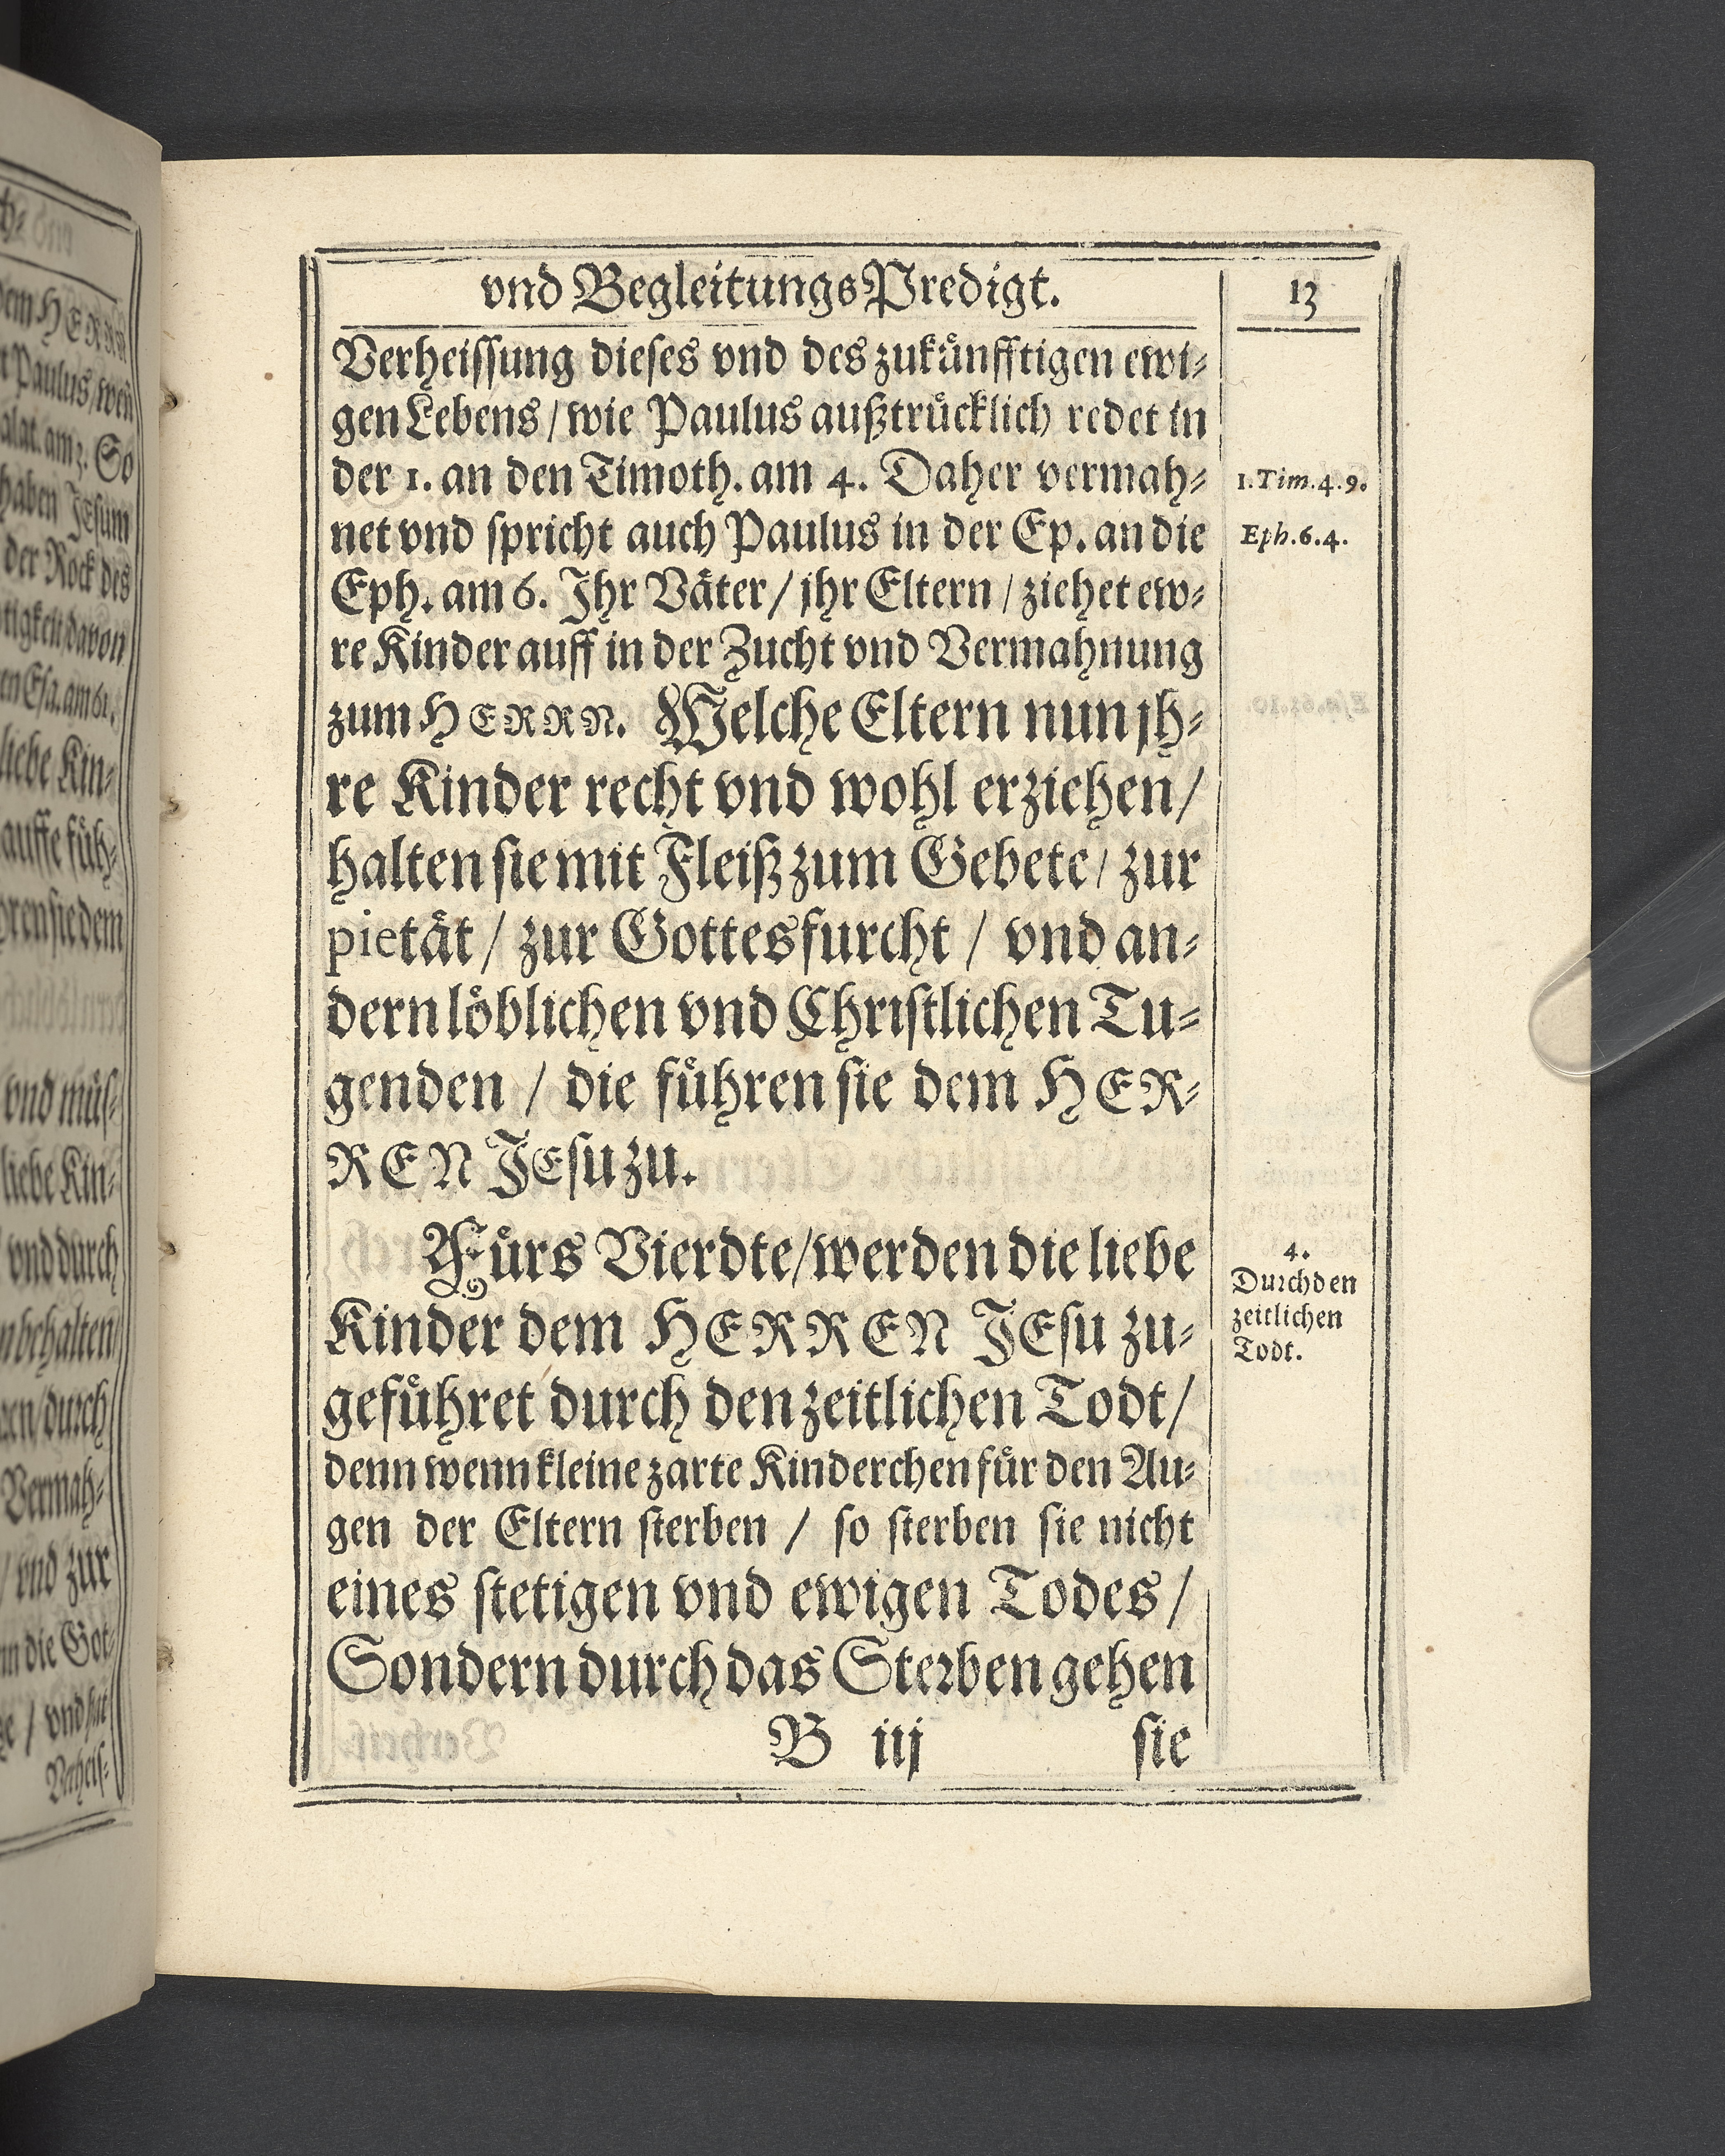 vnd BegleitungsPredigt.
13
Verheissung dieses vnd des zukuͤnfftigen ewi-
gen Lebens / wie Paulus außtruͤcklich redet in
der 1. an den Timoth. am 4. Daher vermah-
1. Tim. 4. 9.
net vnd spricht auch Paulus in der Ep. an die
Eph. 6. 4.
Eph. am 6. Ihr Vaͤter / jhr Eltern / ziehet ew-
re Kinder auff in der Zucht vnd Vermahnung
zum HERRN. Welche Eltern nun jh-
re Kinder recht vnd wohl erziehen /
halten sie mit Fleiß zum Gebete / zur
pietaͤt / zur Gottesfurcht / vnd an-
dern loͤblichen vnd Christlichen Tu-
genden / die fuͤhren sie dem HER-
REN JEsu zu.
Fuͤrs Vierdte / werden die liebe
Kinder dem HERREN JEsu zu-
gefuͤhret durch den zeitlichen Todt /
4.
Durch den
zeitlichen
Todt.
denn wenn kleine zarte Kinderchen fuͤr den Au-
gen der Eltern sterben / so sterben sie nicht
eines stetigen vnd ewigen Todes /
Sondern durch das Sterben gehen
B iij
sie